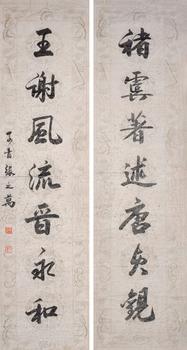 褚虞著述唐貞觀
王謝風流晉永和
子青張之萬